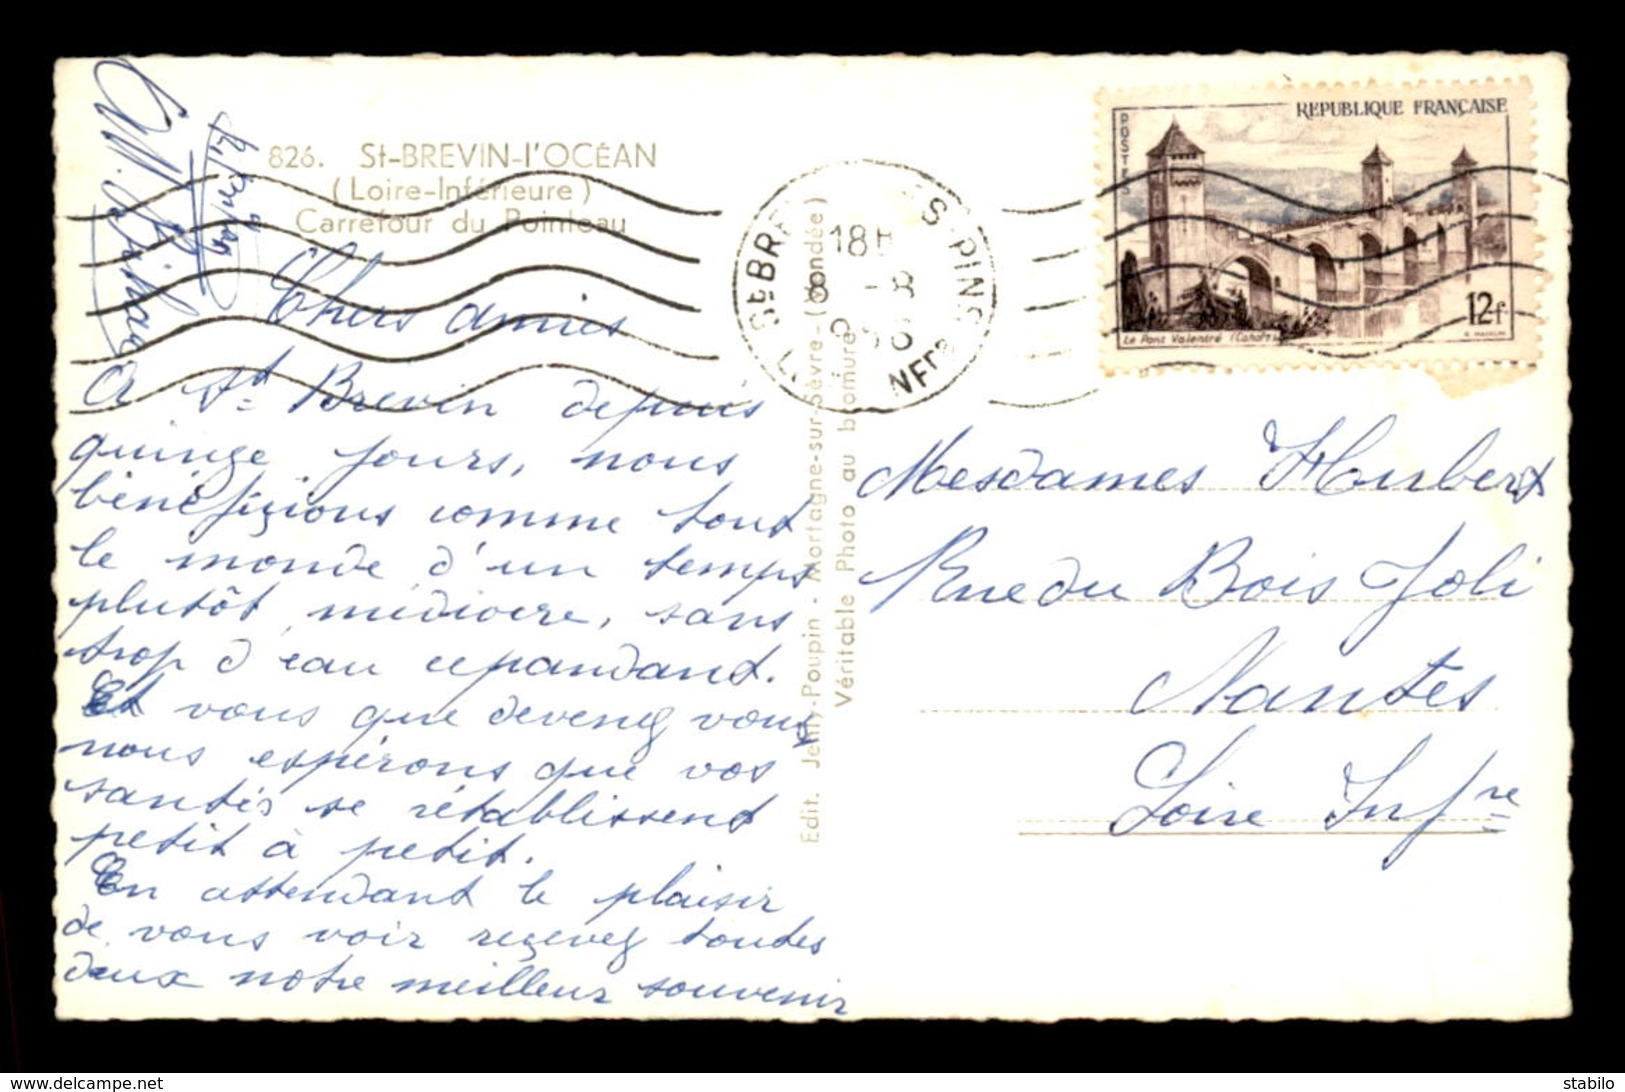 826. St-BREVIN-l'OCÉAN
(Loire-Inférieure)
Carrefour du Pointeau
Chers amies
A St Brevin depuis
quinze jours, nous
bénéfiçions comme tout
le monde d'un temps
plutôt médiocre, sans
trop d'eau cependant.
Et vous que devenez vous
nous espérons que vos
santés se rétablissent
petit à petit.
En attendant le plaisir
de vous voir reçevez toutes
deux notre meilleur souvenir
Edit. Jehly-Poupin - Mortagne-sur-Sèvre - (Vendée)
Véritable Photo au bromure
St BREVIN LES PINS
18H
8 - 8
INFre
REPUBLIQUE FRANÇAISE
POSTES
12f
Le Pont Valentré (Cahors)
Mesdames Hubert
Rue du Bois Joli
Nantes
Loire Infre
delcampe.net
stabilo